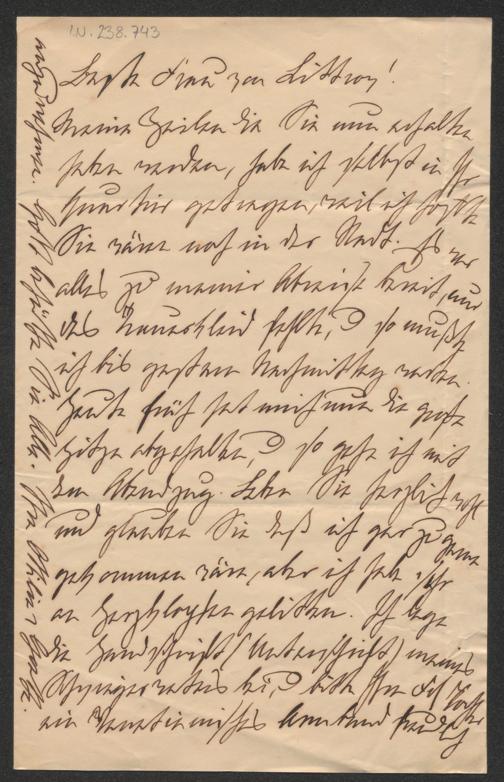 I.N. 238.743
Beste Frau von Littrow!
Meine Zeilen die Sie nun erhalten
haben werden, habe ich selbst in Ihr
Quartier getragen, weil ich hoffte
Sie wären noch in der Stadt. Es war
alles zu meiner Abreise bereit, nur
das Trauerkleid fehlte, u so mußte
ich bis gestern Nachmittag warten.
Heute früh hat mich nun die große
Hitze abgehalten, u so gehe ich mit
dem Abendzug. Leben Sie herzlich wohl
und glauben Sie daß ich gar zu gerne
gekommen wäre, aber ich habe sehr
an Herzklopfen gelitten. Ich lege
die Handschrift (Unterschrift) meines
Schwiegervaters bei, u bitte Ihr Frl Tochter
ein Venetianisches Armband freundlich
anzunehmen. Gott beschütze Sie Alle. Ihre Ottilie v Goethe.